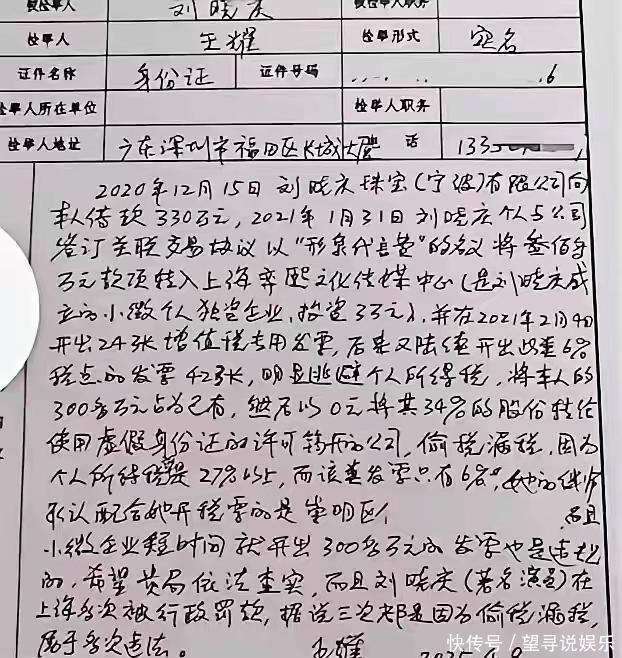 被检举人 刘晓庆 被检举人职务
检举人 王耀 检举形式 实名
证件名称 身份证 证件号码 6
检举人所在单位 检举人职务
检举人地址 广东深圳市福田区长城大厦 话 133
2020年12月15日刘晓庆珠宝(宁波)有限公司向
本人借款330万元,2021年1月31日刘晓庆个人与公司
签订关联交易协议以"形象代言费"的名义将叁佰多
万元款项转入上海奕熙文化传媒中心(是刘晓庆成
立的小微个人独资企业,投资3万元),并在2021年2月4日
开出24张增值税专用发票,后来又陆续开出 6%
税点的发票42张,明显逃避个人所得税,将本人的
300多万元占为己有,然后以0元将其34%的股份转给
使用虚假身份证的许可 的公司,偷税漏税,因为
个人所得税是27%以上,而该 发票只有6%,她的律师
承认配合她开税票的是崇明区 而且
小微企业短时间就开出300多万元的发票也是违规
的,希望贵局依法查实,而且刘晓庆(著名演员)在
上海多次被行政罚款,据说三次都是因为偷税漏税,
属于多次违法。 王耀
快传号/望寻说娱乐